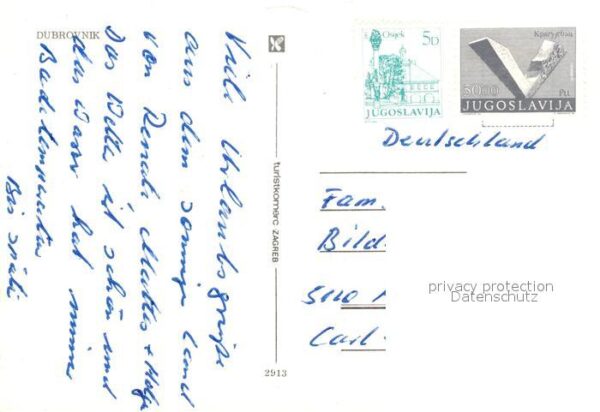 DUBROVNIK
Viele Urlaubsgrüße
aus dem sonnige Land
von Renate +
Das Wetter ist schön und
das Wasser hat immer
Badetemperatur
Bis
turistkomerc ZAGREB
2913
Osijek
5D
JUGOSLAVIJA
Крагујевац
30.00
JUGOSLAVIJA
Deutschland
Fam.
Bild
5110
Carl-
privacy protection
Datenschutz